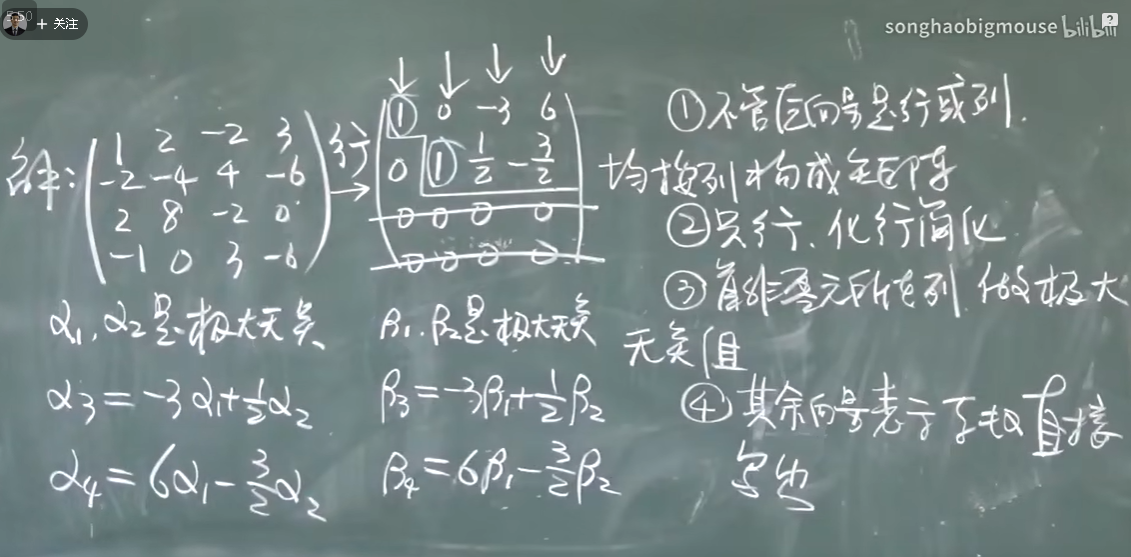 5:50
+ 关注
songhaobigmouse bilibili
解:
1 2 -2 3
-2 -4 4 -6
2 8 -2 0
-1 0 3 -6
行
→
↓ ↓ ↓ ↓
① 0 -3 6
0 ① 1/2 -3/2
0 0 0 0
0 0 0 0
α₁, α₂是极大无关
α₃=-3α₁+1/2α₂
α₄=6α₁-3/2α₂
β₁, β₂是极大无关
β₃=-3β₁+1/2β₂
β₄=6β₁-3/2β₂
①不管原向量是行或列.
均按列构成矩阵
②只行、化行简化
③首非零元所在列 做极大
无关组
④其余向量表示系数直接
写出